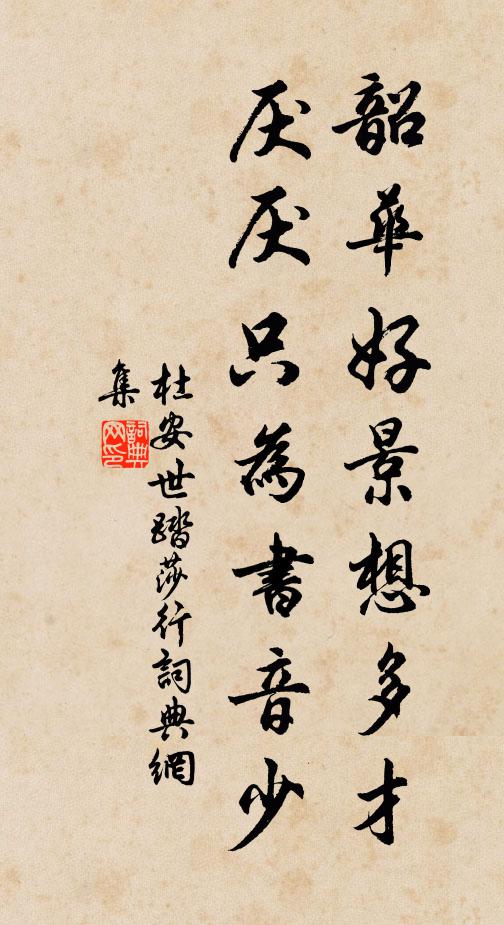 韶華好景想多才
厌厌只為書音少
杜安世踏莎行詞典網
集
詞典網印